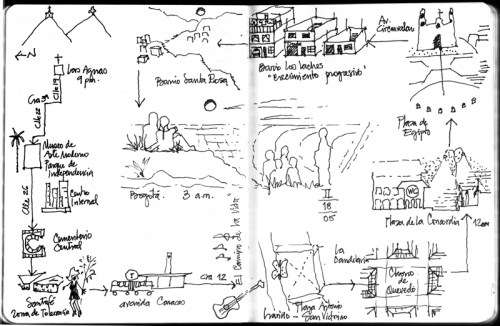 N
Las Aguas
9 pm.
Calle 19
Cra 3ª
Calle 22
Museo de
Arte Moderno
Parque de
Independencia
Centro
Internal
Calle 26
Cementerio
Central
Santafé
Zona de Tolerancia
T
avenida Caracas
Cra 12
El Camino de la Vida
Barrio Santa Rosa
Bogotá. 3 a.m.
Av.
Circunvalar
Barrio Los Laches
"Crecimiento progresivo"
II
18
05
Plaza de
Egipto
WC
Plaza de la Concordia
12 am
La
Candelaria
Chorro
de
Quevedo
Plaza Antonio
San Victorino